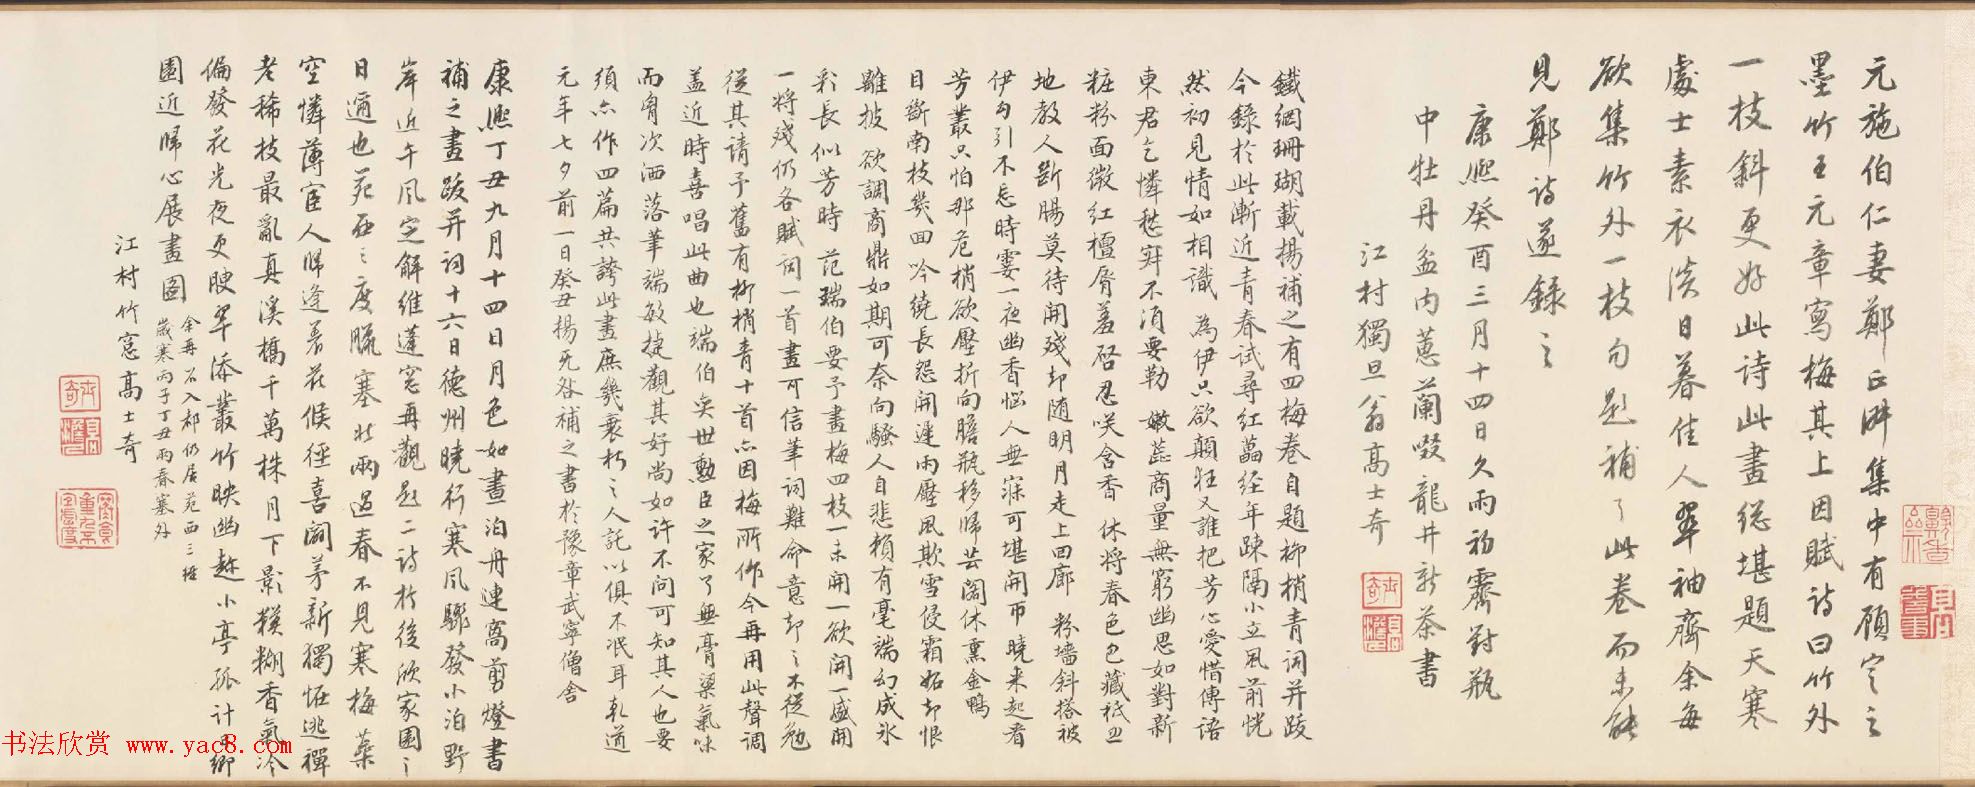 元施伯仁妻鄭氏 集中有願定之
墨竹王元章寫梅其上因賦詩曰竹外
一枝斜更好此詩此畫總堪題天寒
處士素衣淡日暮佳人翠袖齊余每
欲集竹外一枝句題補之此卷而未能
見鄭詩遂錄之
康熙癸酉三月十四日久雨初霽對瓶
中牡丹盆内蕙蘭啜龍井新茶書
江村獨旦翁高士奇
鐵網珊瑚載揚補之有四梅卷自題柳梢青詞并跋
今錄於此漸近青春試尋紅蓓經年疎隔小立風前恍
然初見情如相識 為伊只欲顛狂又誰把芳心愛惜傳語
東君乞憐愁寂不須要勒 嫩蕊商量無窮幽思如對新
粧粉面微紅檀脣羞啓忍咲含香 休將春色包藏祗䓁
地教人斷腸莫待開殘却随明月走上回廊 粉墻斜搭被
伊勾引不忘時霎一夜幽香惱人無寐可堪開帀 曉來起看
芳叢只怕那危梢欲壓折向膽瓶移歸芸閣休熏金鴨
目斷南枝幾回吟繞長怨開遲雨壓風欺雪侵霜妬却恨
離披 欲調商鼎如期可奈向騷人自悲賴有毫端幻成氷
彩長似芳時 范端伯要予畫梅四枝一未開一欲開一盛開
一將殘仍各賦詞一首畫可信筆詞難命意却之不從勉
從其請予舊有柳梢青十首亦因梅所作今再用此聲調
盖近時喜唱此曲也端伯奕世勳臣之家了無膏粱氣味
而胷次洒落筆端敏捷觀其好尚如許不問可知其人也要
須亦作四篇共誇此畫庶幾衰朽之人託以俱不泯耳乾道
元年七夕前一日癸丑揚无咎補之書於豫章武寧僧舍
康熙丁丑九月十四日月色如晝泊舟連窩剪燈書
補之畫跋并詞十六日德州曉行寒風驟發小泊野
岸近午風定解維蓬窓再觀題二詩於後欣家園之
日邇也苑西之度臘塞北兩過春不見寒梅蘂
空憐薄宦人歸逢着花候徑喜闢茅新獨恠逃禪
老稀枝最亂真溪橋千萬株月下影糢糊香氣冷
偏發花光夜更腴翠添叢竹映幽趂小亭孤計日鄉
園近歸心展畫圖
余再召入都仍居苑西三換
歲寒丙子丁丑兩春塞外
江村竹窓高士奇
书法欣赏 www.yac8.com